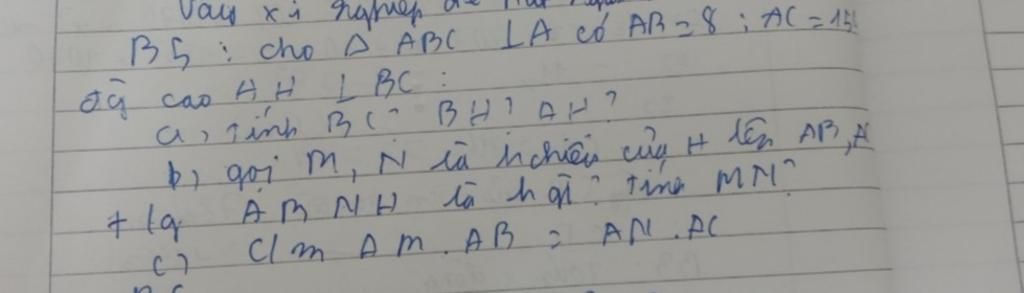 Vậy xí nghiệp
B5 : cho Δ ABC ⊥A có AB = 8 ; AC = 15
đg cao AH ⊥ BC :
a, Tính BC? BH? AH?
b, gọi M, N là hchiếu của H lên AB, A
tg AMNH là h gì? Tính MN?
c) C/m AM.AB = AN.AC